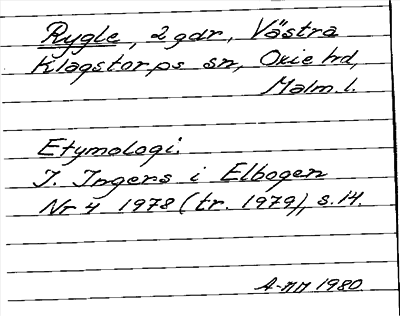 Rygle, 2 gdr, Västra
Klagstorps sn, Oxie hd,
Malm. l.
Etymologi.
I. Ingers i Elbogen
Nr 4 1978 (tr. 1979), s. 14.
A-nn 1980